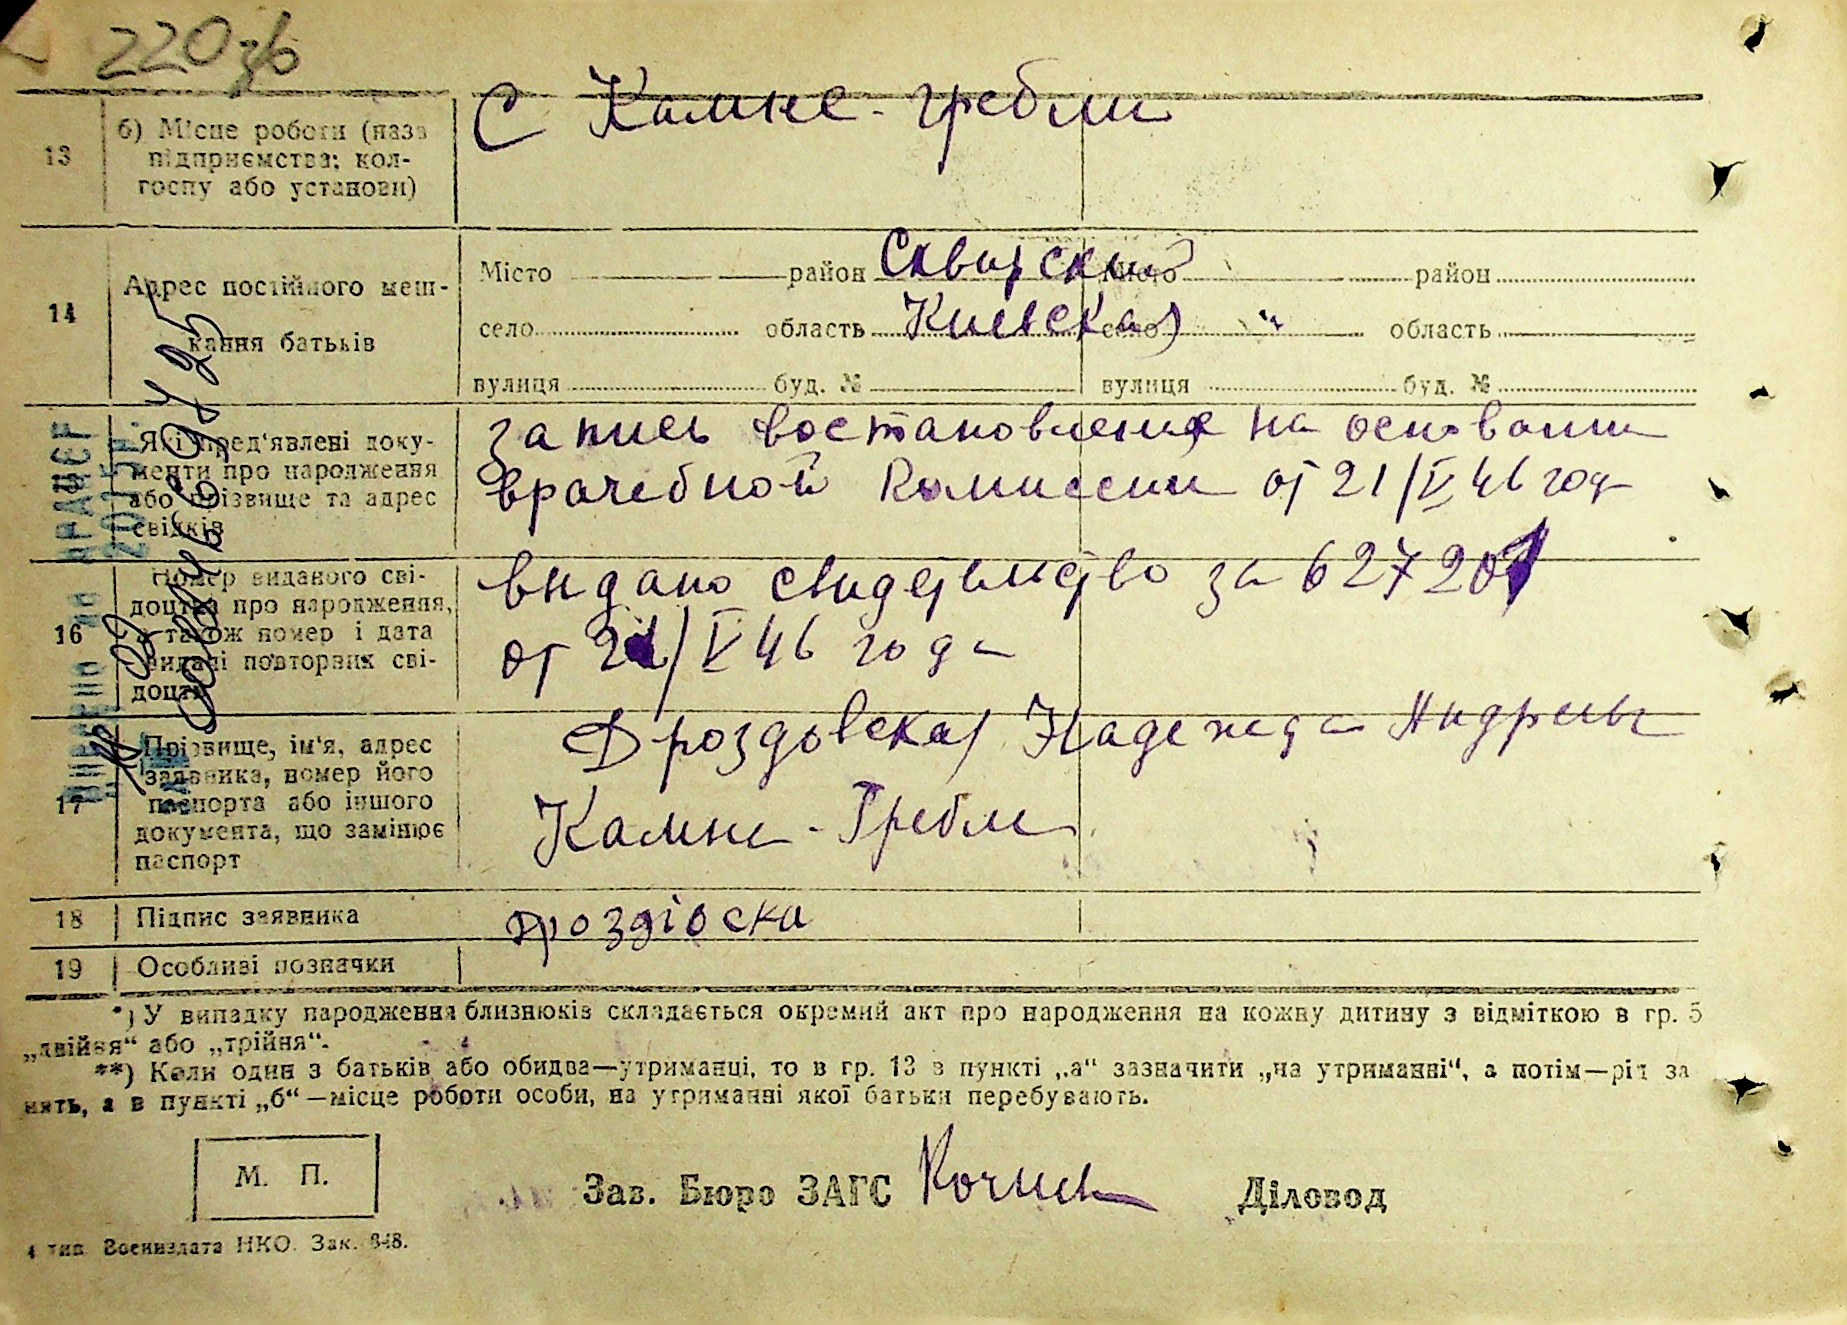 220 зв
13 б) Місце роботи (назв підприємства; колгоспу або установи)
С Камне-гребли
14 Адрес постійного меш-
кання батьків
Місто район Сквирский Місто район
село область Киевская село " область
вулиця буд. № вулиця буд. №
Які пред'явлені доку-
менти про народження
або прізвище та адрес
свідків
запись востановлена на основании
врачебной комиссии от 21/V 46 года
16 Номер виданого сві-
доцтва про народження,
а також номер і дата
видачі повторних сві-
доцтв
видано свидетельство за 627201
от 21/V 46 года
17 Прізвище, ім'я, адрес
заявника, номер його
паспорта або іншого
документа, що замінює
паспорт
Дроздовская Надежда Андреевн
Камне-Гребля
18 Підпис заявника
19 Особливі позначки
*) У випадку народження близнюків складається окремий акт про народження на кожну дитину з відміткою в гр. 5
„двійня“ або „трійня“.
**) Коли один з батьків або обидва—утриманці, то в гр. 13 в пункті „а“ зазначити „на утриманні“, а потім—рід за
нять, а в пункті „б“ —місце роботи особи, на утриманні якої батьки перебувають.
М. П.
Зав. Бюро ЗАГС
Діловод
4 тип. Воениздата НКО. Зак. 648.